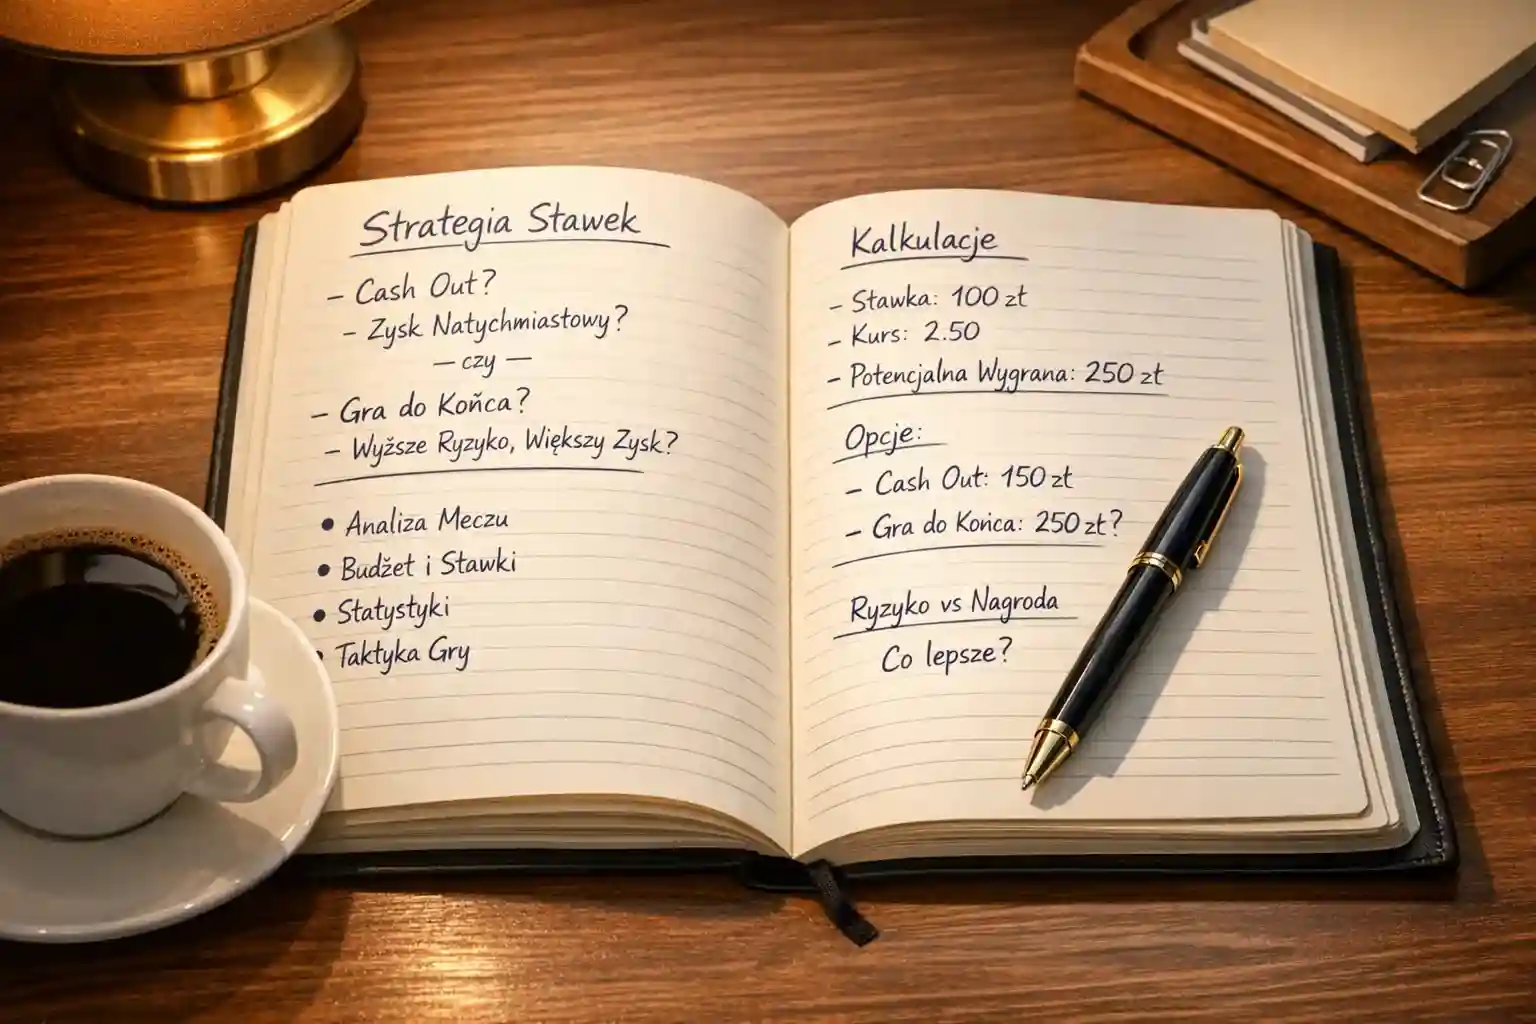 Strategia Stawek
– Cash Out?
– Zysk Natychmiastowy?
— czy —
– Gra do Końca?
– Wyższe Ryzyko, Większy Zysk?
• Analiza Meczu
• Budżet i Stawki
• Statystyki
• Taktyka Gry
Kalkulacje
– Stawka: 100 zł
– Kurs: 2.50
– Potencjalna Wygrana: 250 zł
Opcje:
– Cash Out: 150 zł
– Gra do Końca: 250 zł?
Ryzyko vs Nagroda
Co lepsze?